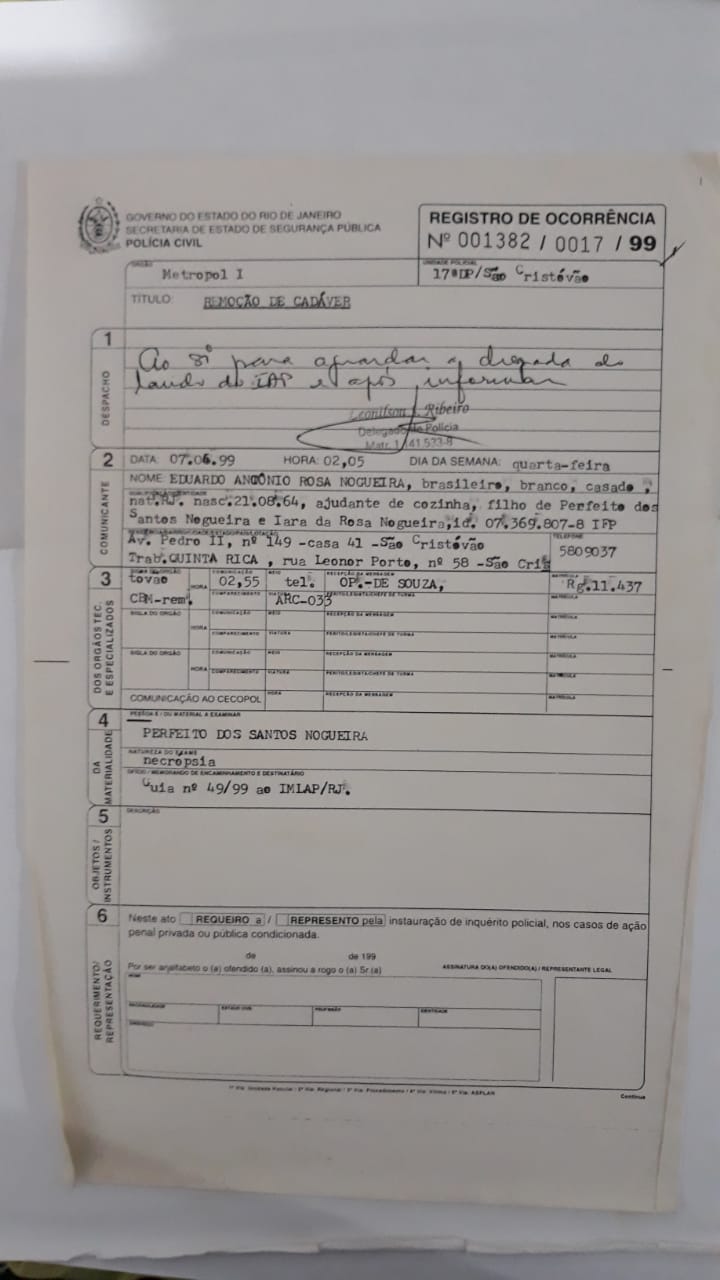 GOVERNO DO ESTADO DO RIO DE JANEIRO
SECRETARIA DE ESTADO DE SEGURANÇA PÚBLICA
POLÍCIA CIVIL
REGISTRO DE OCORRÊNCIA
Nº 001382 / 0017 / 99
ÓRGÃO
Metropol I
UNIDADE POLICIAL
17ªDP/São Cristóvão
TÍTULO: REMOÇÃO DE CADÁVER
1
DESPACHO
Ao SI para aguardar a chegada do
laudo do IAP e após, informar
Leonilson Ribeiro
Delegado de Polícia
Matr. 1/41.523-8
2
COMUNICANTE
DATA: 07.06.99 HORA: 02,05 DIA DA SEMANA: quarta-feira
NOME: EDUARDO ANTÔNIO ROSA NOGUEIRA, brasileiro, branco, casado,
nat.RJ. nasc.21.08.64, ajudante de cozinha, filho de Perfeito dos
Santos Nogueira e Iara da Rosa Nogueira,id. 07.369.807-8 IFP
Av. Pedro II, nº 149 -casa 41 -São Cristóvão
TELEFONE
5809037
Trab.QUINTA RICA , rua Leonor Porto, nº 58 -São Cris
3
DOS ÓRGÃOS TEC. E ESPECIALIZADOS
tovao
HORA
COMUNICAÇÃO
02,55
MEIO
tel.
RECEPÇÃO DA MENSAGEM
OP.-DE SOUZA,
MATRÍCULA
Rg.11.437
CBM-rem.
COMPARECIMENTO
VIATURA
ARC-033
PERITO/LEGISTA/CHEFE DE TURMA
SIGLA DO ÓRGÃO
HORA
COMUNICAÇÃO
MEIO
RECEPÇÃO DA MENSAGEM
MATRÍCULA
COMPARECIMENTO
VIATURA
PERITO/LEGISTA/CHEFE DE TURMA
MATRÍCULA
SIGLA DO ÓRGÃO
HORA
COMUNICAÇÃO
MEIO
RECEPÇÃO DA MENSAGEM
MATRÍCULA
COMPARECIMENTO
VIATURA
PERITO/LEGISTA/CHEFE DE TURMA
MATRÍCULA
COMUNICAÇÃO AO CECOPOL
HORA
RECEPÇÃO DA MENSAGEM
MATRÍCULA
4
DA MATERIALIDADE
PESSOA E / OU MATERIAL A EXAMINAR
PERFEITO DOS SANTOS NOGUEIRA
NATUREZA DO EXAME
necropsia
OFÍCIO / MEMORANDO DE ENCAMINHAMENTO E DESTINATÁRIO
Guia nº 49/99 ao IMLAP/RJ.
5
OBJETOS / INSTRUMENTOS
DESCRIÇÃO
6
REQUERIMENTO/ REPRESENTAÇÃO
Neste ato REQUEIRO a / REPRESENTO pela instauração de inquérito policial, nos casos de ação
penal privada ou pública condicionada.
de de 199
Por ser analfabeto o (a) ofendido (a), assinou a rogo o (a) Sr.(a)
ASSINATURA DO(A) OFENDIDO(A) / REPRESENTANTE LEGAL
NOME
NACIONALIDADE
ESTADO CIVIL
PROFISSÃO
IDENTIDADE
ENDEREÇO
1ª Via: Unidade Policial / 2ª Via: Regional / 3ª Via: Procedimento / 4ª Via: Vítima / 5ª Via: ASPLAN
Continua